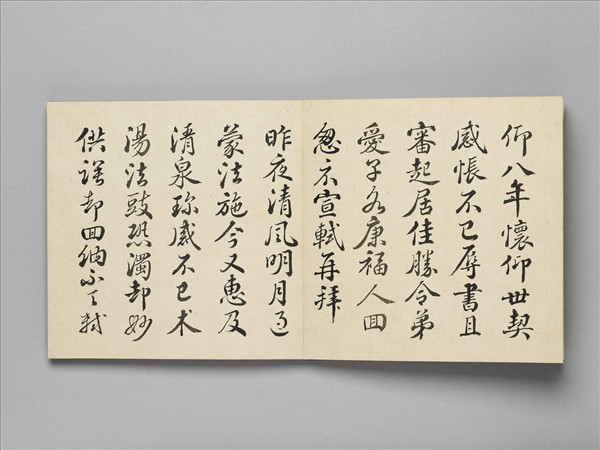 仰八年懷仰世契
感悵不已辱書且
審起居佳勝令弟
愛子各康福人回
怱不宣軾再拜
昨夜清風明月過
蒙法施今又惠及
清泉珍感不已术
湯法豉恐濁却妙
供謹却回納不一一軾